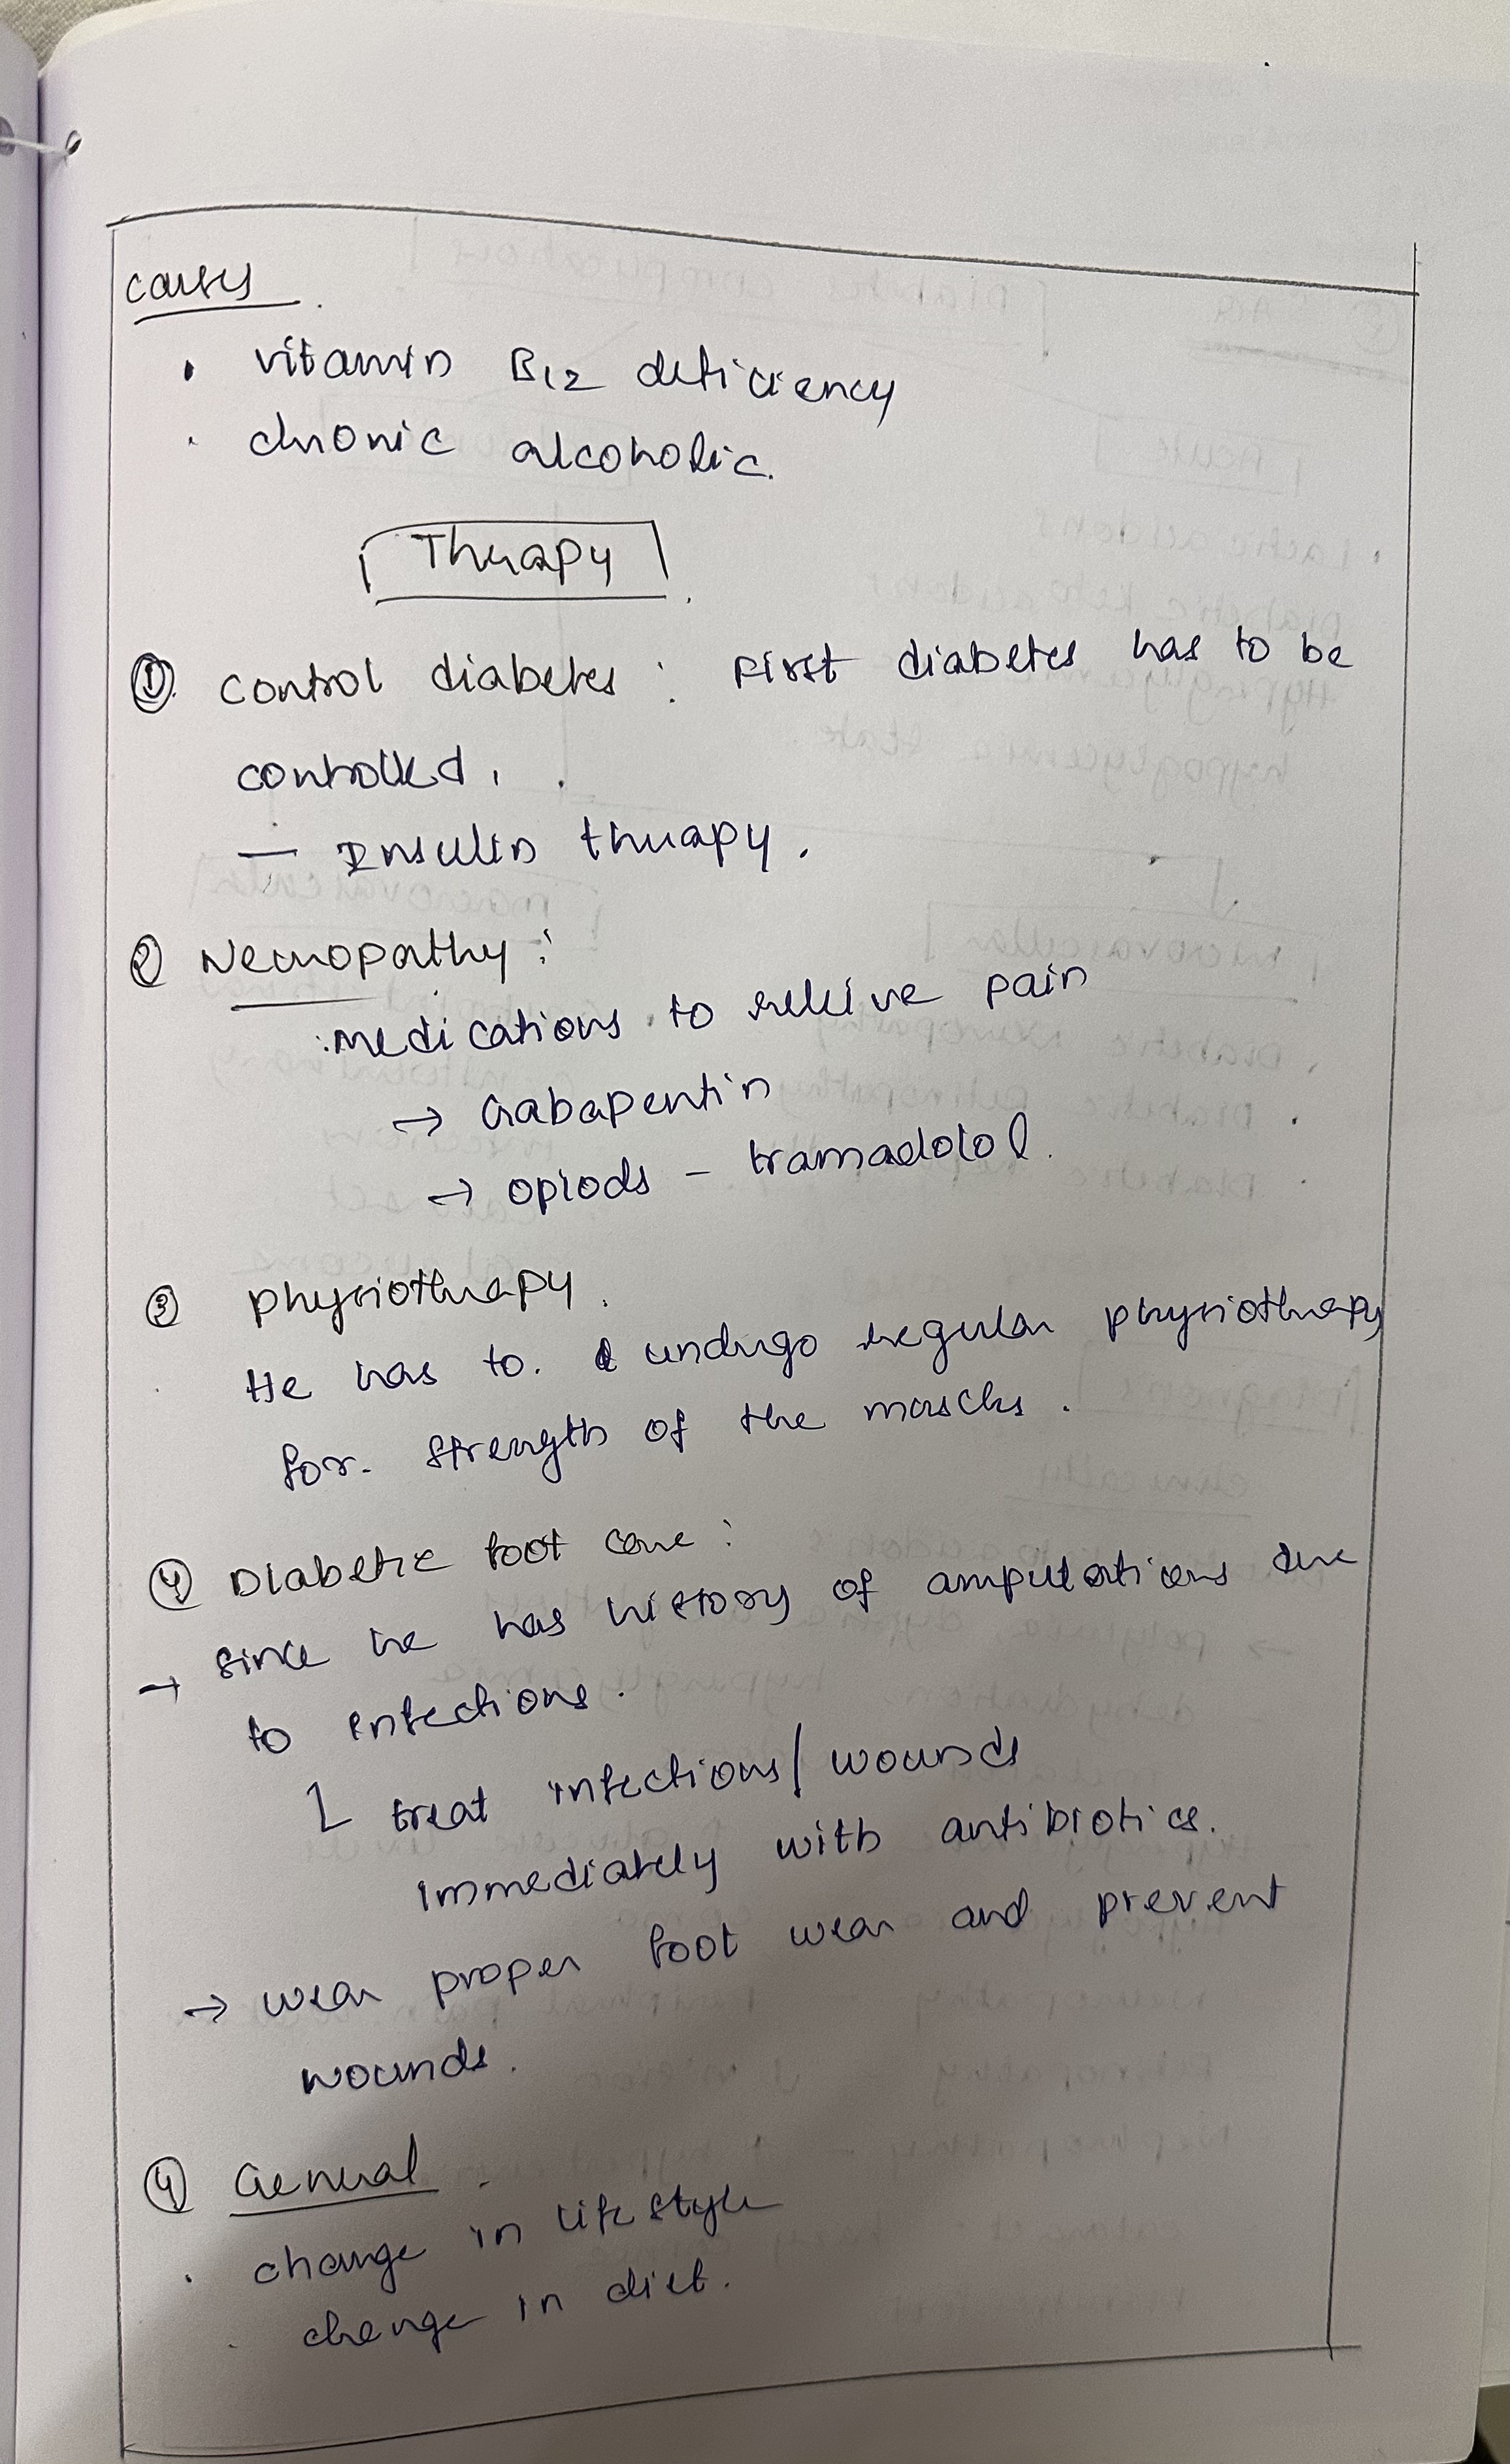 causes
• vitamin B12 deficiency
• chronic alcoholic.
Therapy
① control diabetes : First diabetes has to be
controlled.
— Insulin therapy.
② Neuropathy :
: Medications to releive pain
→ Gabapentin
→ opiods - tramadolol.
③ physiotherapy.
He has to. undergo regular physiotherapy
for. strength of the muscles.
④ Diabetic foot care :
→ since he has history of amputations due
to infections.
↳ treat infections/wounds
immediately with antibiotics.
→ wear proper foot wear and prevent
wounds.
④ General
• change in life style
• change in diet.